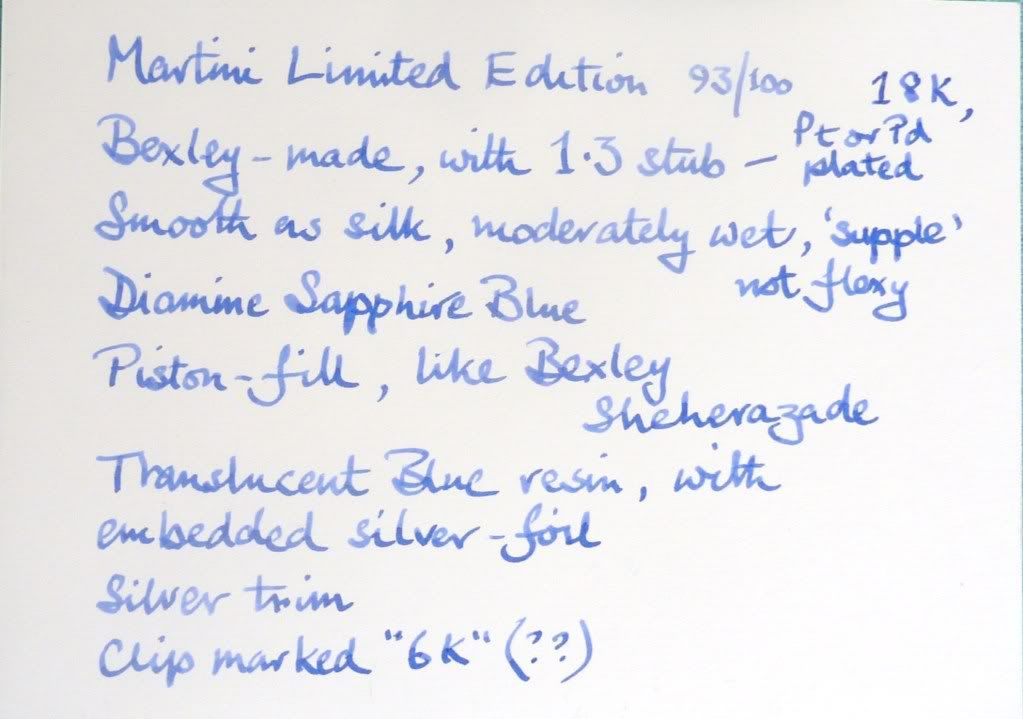 Martini Limited Edition 93/100
18K,
Bexley-made, with 1.3 stub — Pt or Pd
plated
Smooth as silk, moderately wet, 'supple'
not flexy
Diamine Sapphire Blue
Piston-fill, like Bexley
Sheherazade
Translucent Blue resin, with
embedded silver-foil
Silver trim
Clip marked "6K" (??)